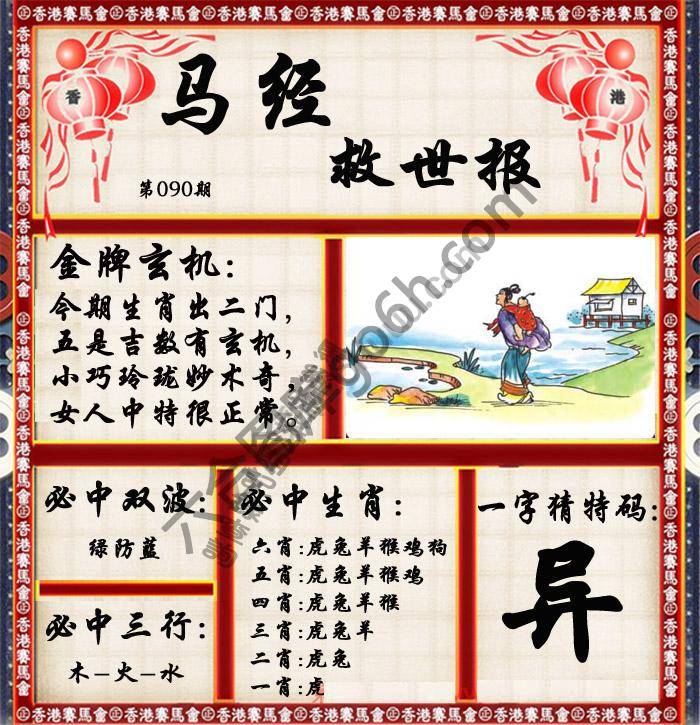 香港賽馬會㊣香港賽馬會㊣香港賽馬會㊣香港賽馬會㊣香港賽馬會㊣香港賽馬會
香
港
马经
救世报
第090期
金牌玄机：
今期生肖出二门，
五是吉数有玄机，
小巧玲珑妙木奇，
女人中特很正常。
必中双波：
绿防蓝
必中三行：
木–火–水
必中生肖：
六肖:虎兔羊猴鸡狗
五肖:虎兔羊猴鸡
四肖:虎兔羊猴
三肖:虎兔羊
二肖:虎兔
一肖:虎
一字猜特码：
异